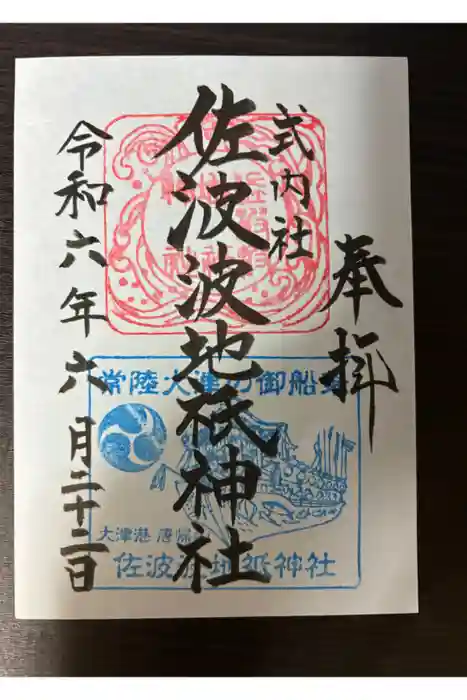 奉拝
式内社
佐波波地祇神社
令和六年六月二十二日
常陸大津の御船
大津港 唐
佐波波地祇神社